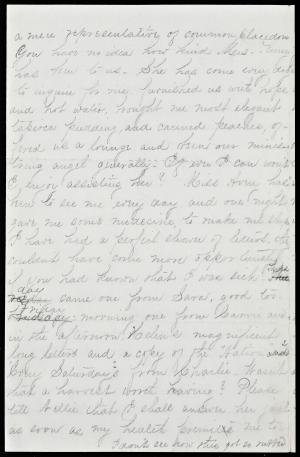 a mere representative of common placedom
You have no idea how kind Mrs.
has been to us. She has come every day
to inquire for me, furnished us with
and hot water, brought me most elegant
tapioca pudding, and canned peaches, of-
fered us a lounge and been our minis-
tring angel generally. If ever I can won't
I enjoy assisting her? Miss has
been to see me every day and one night
gave me some medicine to make me sleep
I have had a perfect shower of letters, they
couldn't have come more opportunely
if you had known that I was sick.
day came one from Sara, good
Friday morning one from
in the afternoon Helen's magnificent
long letters and a copy of the Nation and
Saturday's from Charlie. Wasn't
that a harvest worth having? Please
tell Nellie that I shall answer her just
as soon as my health permits me to
I don't see how this got so rubbed